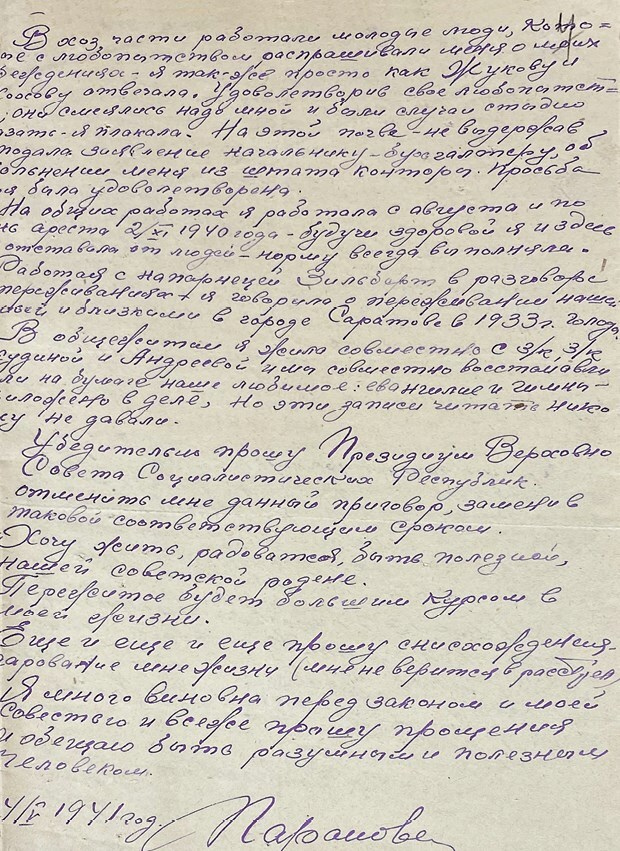 В хоз. части работали молодые люди, кото=
ые с любопытством распрашивали меня о моих
беждениях - я так-же просто как Жукову и
отвечала. Удоволетворив свое любопытст=
, они смеялись надо мной и были случаи стыдно
азать - я плакала. На этой почве - не выдержав
подала заявление начальнику - бухгалтеру, об
вольнении меня из штата конторы. Просьба
я была удоволетворена.
На общих работах я работала с августа и по
нь ареста 2/XI 1940 года - будучи здоровой я и здесь
отставала от людей - норму всегда выполняла.
Работая с напарницей Зильберт в разговоре
переживаниях я говорила о переживании наши
мьи и близкими в городе Саратове в 1933 г. голода.
В общежитии я жила совместно с з/к, з/к
судиной и Андреевой и мы совместно восстанавли
ли на бумаге наше любимое: евангилие и гимны -
иложено в деле, но эти записи читать нико
му не давали.
Убедительно прошу Президиум Верховно
Совета Социалистических Республик.
отменить мне данный приговор, заменив
таковой соответствующим сроком.
Хочу жить, радоватся, быть полезной,
нашей советской родене.
Пережитое будет большим курсом в
моей жизни.
Еще и еще и еще прошу снисхождения -
дарование мне жизни (мне не верится в расстрел)
Я много виновна перед законом и моей
Совестью и все же прашу прощения
и обещаю быть разумным и полезным
человеком.
4/V 1941 год.